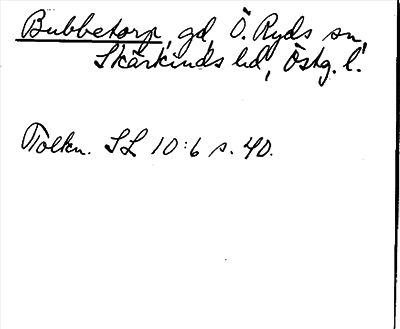 Bubbetorp, gd, Ö. Ryds sn,
Skärkinds hd, Östg. l.
Tolkn. SL 10:6 s. 40.